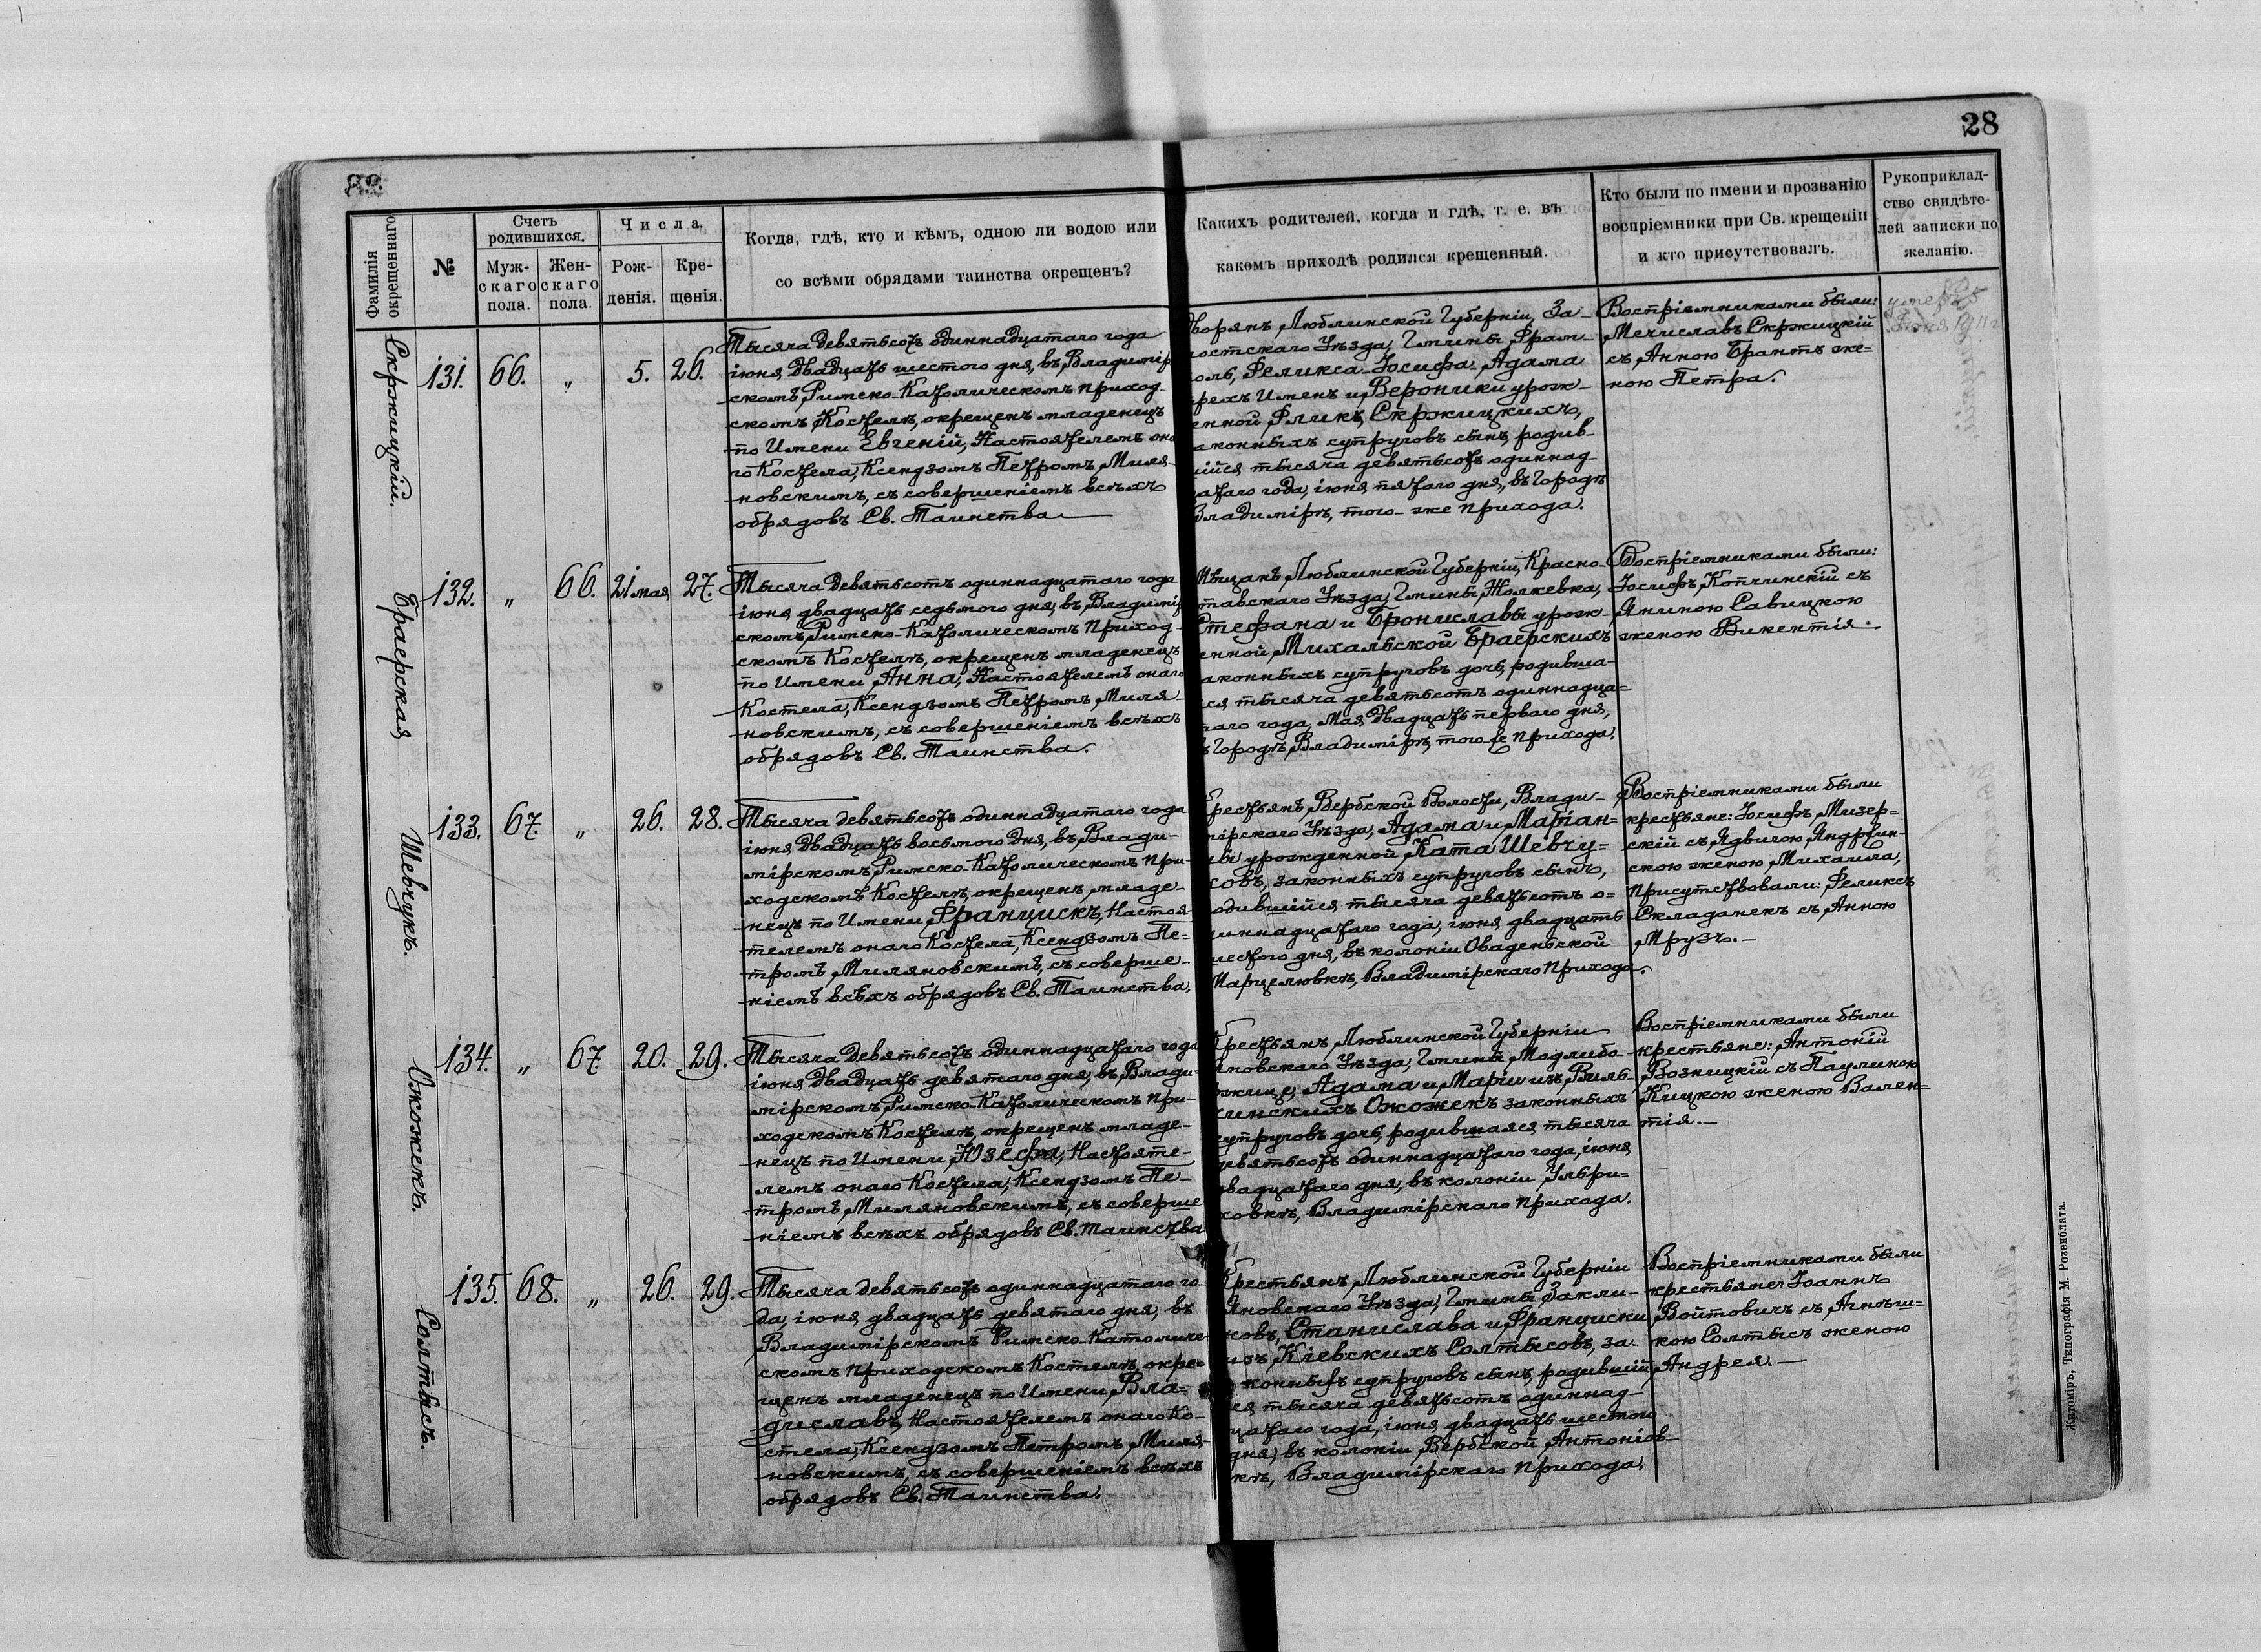 28
Фамилія
окрещеннаго
№
Счетъ
родившихся.
Муж-
скаго
пола.
Жен-
скаго
пола.
Числа.
Рож-
денія.
Кре-
щенія.
Когда, гдѣ, кто и кѣмъ, одною ли водою или
со всѣми обрядами таинства окрещенъ?
Какихъ родителей, когда и гдѣ, т. е. въ
какомъ приходѣ родился крещенный.
Кто были по имени и прозванію
воспріемники при Св. крещеніи
и кто присутствовалъ.
Рукоприклад-
ство свидѣте-
лей записки по
желанію.
Скржицкій.
131. 66. „ 5. 26.
Тысяча девятьсотъ одиннадцатаго года
іюня двадцать шестого дня, въ Владимір
скомъ Римско-Католическомъ приход-
скомъ Костелѣ, окрещенъ младенецъ
по Имени Евгеній, Настоятелемъ она
го Костела, Ксендзомъ Петромъ Миля-
новскимъ, съ совершеніемъ всѣхъ
обрядовъ Св. Таинства
Дворянъ Люблинской Губерніи, За-
мостскаго Уѣзда, Гмины Фрам-
поль, Феликса-Іосифа-Адама
трехъ Именъ и Вероники урож-
енной Фликъ, Скржицкихъ,
законныхъ супруговъ сынъ, родив-
шійся тысяча девятьсотъ одиннад-
цатаго года, іюня пятаго дня, въ Городѣ
Владимірѣ, того-же прихода.
Воспріемниками были:
Мечиславъ Скржицкій
съ Анною Брантъ же=
ною Петра.
умеръ 5
1911 г
Браерская
132. „ 66. 21 мая 27.
Тысяча девятьсотъ одиннадцатаго года
іюня двадцать седьмого дня, въ Владимір
скомъ Римско-Католическомъ Приход-
скомъ Костелѣ, окрещенъ младенецъ
по Имени Анна, Настоятелемъ онаго
Костела, Ксендзомъ Петромъ Миля-
новскимъ, съ совершеніемъ всѣхъ
обрядовъ Св. Таинства.
Мѣщанъ Люблинской Губерніи, Красно-
ставскаго Уѣзда, Гмины Жолкевка,
Стефана и Брониславы урож-
енной Михальской Браерскихъ
законныхъ супруговъ дочь, родивша-
яся тысяча девятьсотъ одиннадца=
таго года, Мая двадцать перваго дня,
въ Городѣ Владимірѣ, того-же прихода.
Воспріемниками были:
Іосифъ Копчинскій съ
Яниною Савицкою
женою Викентія.
Шевчукъ.
133. 67. „ 26. 28.
Тысяча девятьсотъ одиннадцатаго года
іюня двадцать восьмого дня, въ Влади-
мірскомъ Римско-Католическомъ При-
ходскомъ Костелѣ, окрещенъ младе-
нецъ по Имени Францискъ, Настоя-
телемъ онаго Костела, Ксендзомъ Пе=
тромъ Миляновскимъ, съ соверше-
ніемъ всѣхъ обрядовъ Св. Таинства.
Крестьянъ, Вербской Волости, Влади-
мірскаго Уѣзда, Адама и Маріан=
ны урожденной Ката Шевчу=
ковъ, законныхъ супруговъ сынъ,
родившійся тысяча девятьсотъ о=
диннадцатаго года, іюня двадцать
шестого дня, въ колоніи Оваденьской
Марцелювкѣ, Владимірскаго Прихода.
Воспріемниками были
крестьяне: Іосифъ Мизер-
скій съ Ядвигою Яндржин-
скою женою Михаила,
присутствовали: Феликсъ
Складанекъ съ Анною
Мрузъ.-
Ожожекъ.
134. „ 67. 20. 29.
Тысяча девятьсотъ одиннадцатаго года
іюня двадцать девятаго дня, въ Влади-
мірскомъ Римско-Католическомъ При-
ходскомъ Костелѣ, окрещенъ младе-
нецъ по Имени Юзефа, Настояте-
лемъ онаго Костела, Ксендзомъ Пе-
тромъ Миляновскимъ, съ соверше
ніемъ всѣхъ обрядовъ Св. Таинства
Крестьянъ Люблинской Губерніи
Яновскаго Уѣзда, Гмины Модлибо-
ржице, Адама и Маріи изъ Виль-
чинскихъ Ожожекъ законныхъ
супруговъ дочь, родившаяся тысяча
девятьсотъ одиннадцатаго года, іюня
двадцатаго дня, въ колоніи Ульри=
ховкѣ, Владимірскаго прихода.
Воспріемниками были
крестьяне: Антоній
Возницкій съ Паулиною
Кицкою женою Вален=
тія.-
Солтысъ.
135. 68. „ 26. 29.
Тысяча девятьсотъ одиннадцатаго го-
да, іюня двадцать девятаго дня, въ
Владимірскомъ Римско-Католиче-
скомъ приходскомъ Костелѣ, окре=
щенъ младенецъ по Имени Вла=
диславъ, Настоятелемъ онаго Ко-
стела, Ксендзомъ Петромъ Миля-
новскимъ, съ совершеніемъ всѣхъ
обрядовъ Св. Таинства.
Крестьянъ Люблинской Губерніи
Яновскаго Уѣзда, Гмины Закли-
ковъ, Станислава и Франциски
изъ Кіевскихъ Солтысовъ, за-
конныхъ супруговъ сынъ, родившій
ся тысяча девятьсотъ одиннад-
цатаго года, іюня двадцать шестого
дня, въ колоніи Вербской Антоніов-
кѣ, Владимірскаго прихода.
Воспріемниками были
крестьяне: Іоаннъ
Войтовичъ съ Агнѣш=
кою Солтысъ женою
Андрея.-
Житоміръ, Типографія М. Розенблата.